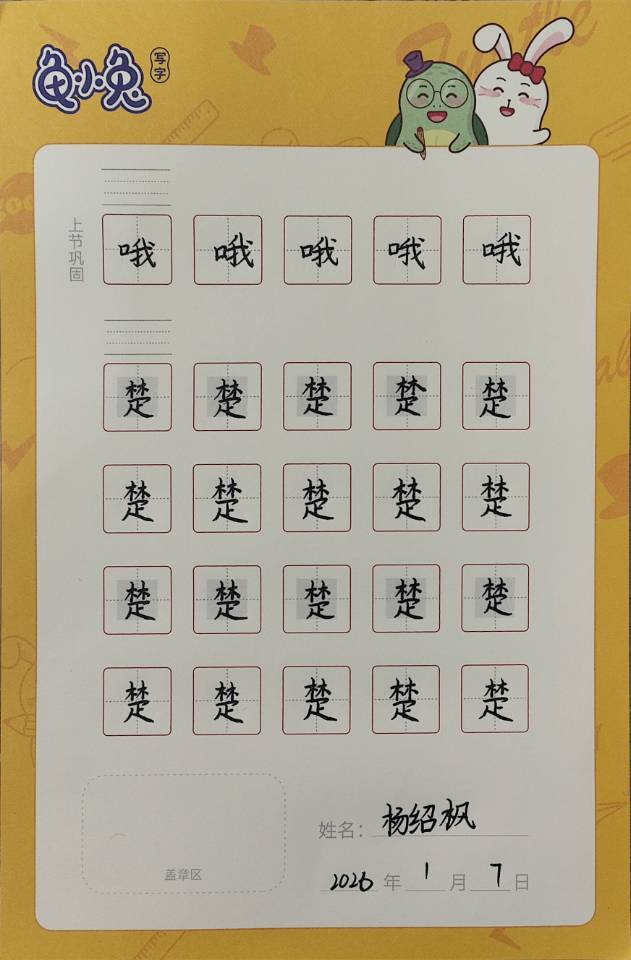 龟小兔
写字
上节巩固
哦 哦 哦 哦 哦
楚 楚 楚 楚 楚
楚 楚 楚 楚 楚
楚 楚 楚 楚 楚
楚 楚 楚 楚 楚
姓名：杨绍枫
盖章区
2026 年 1 月 7 日